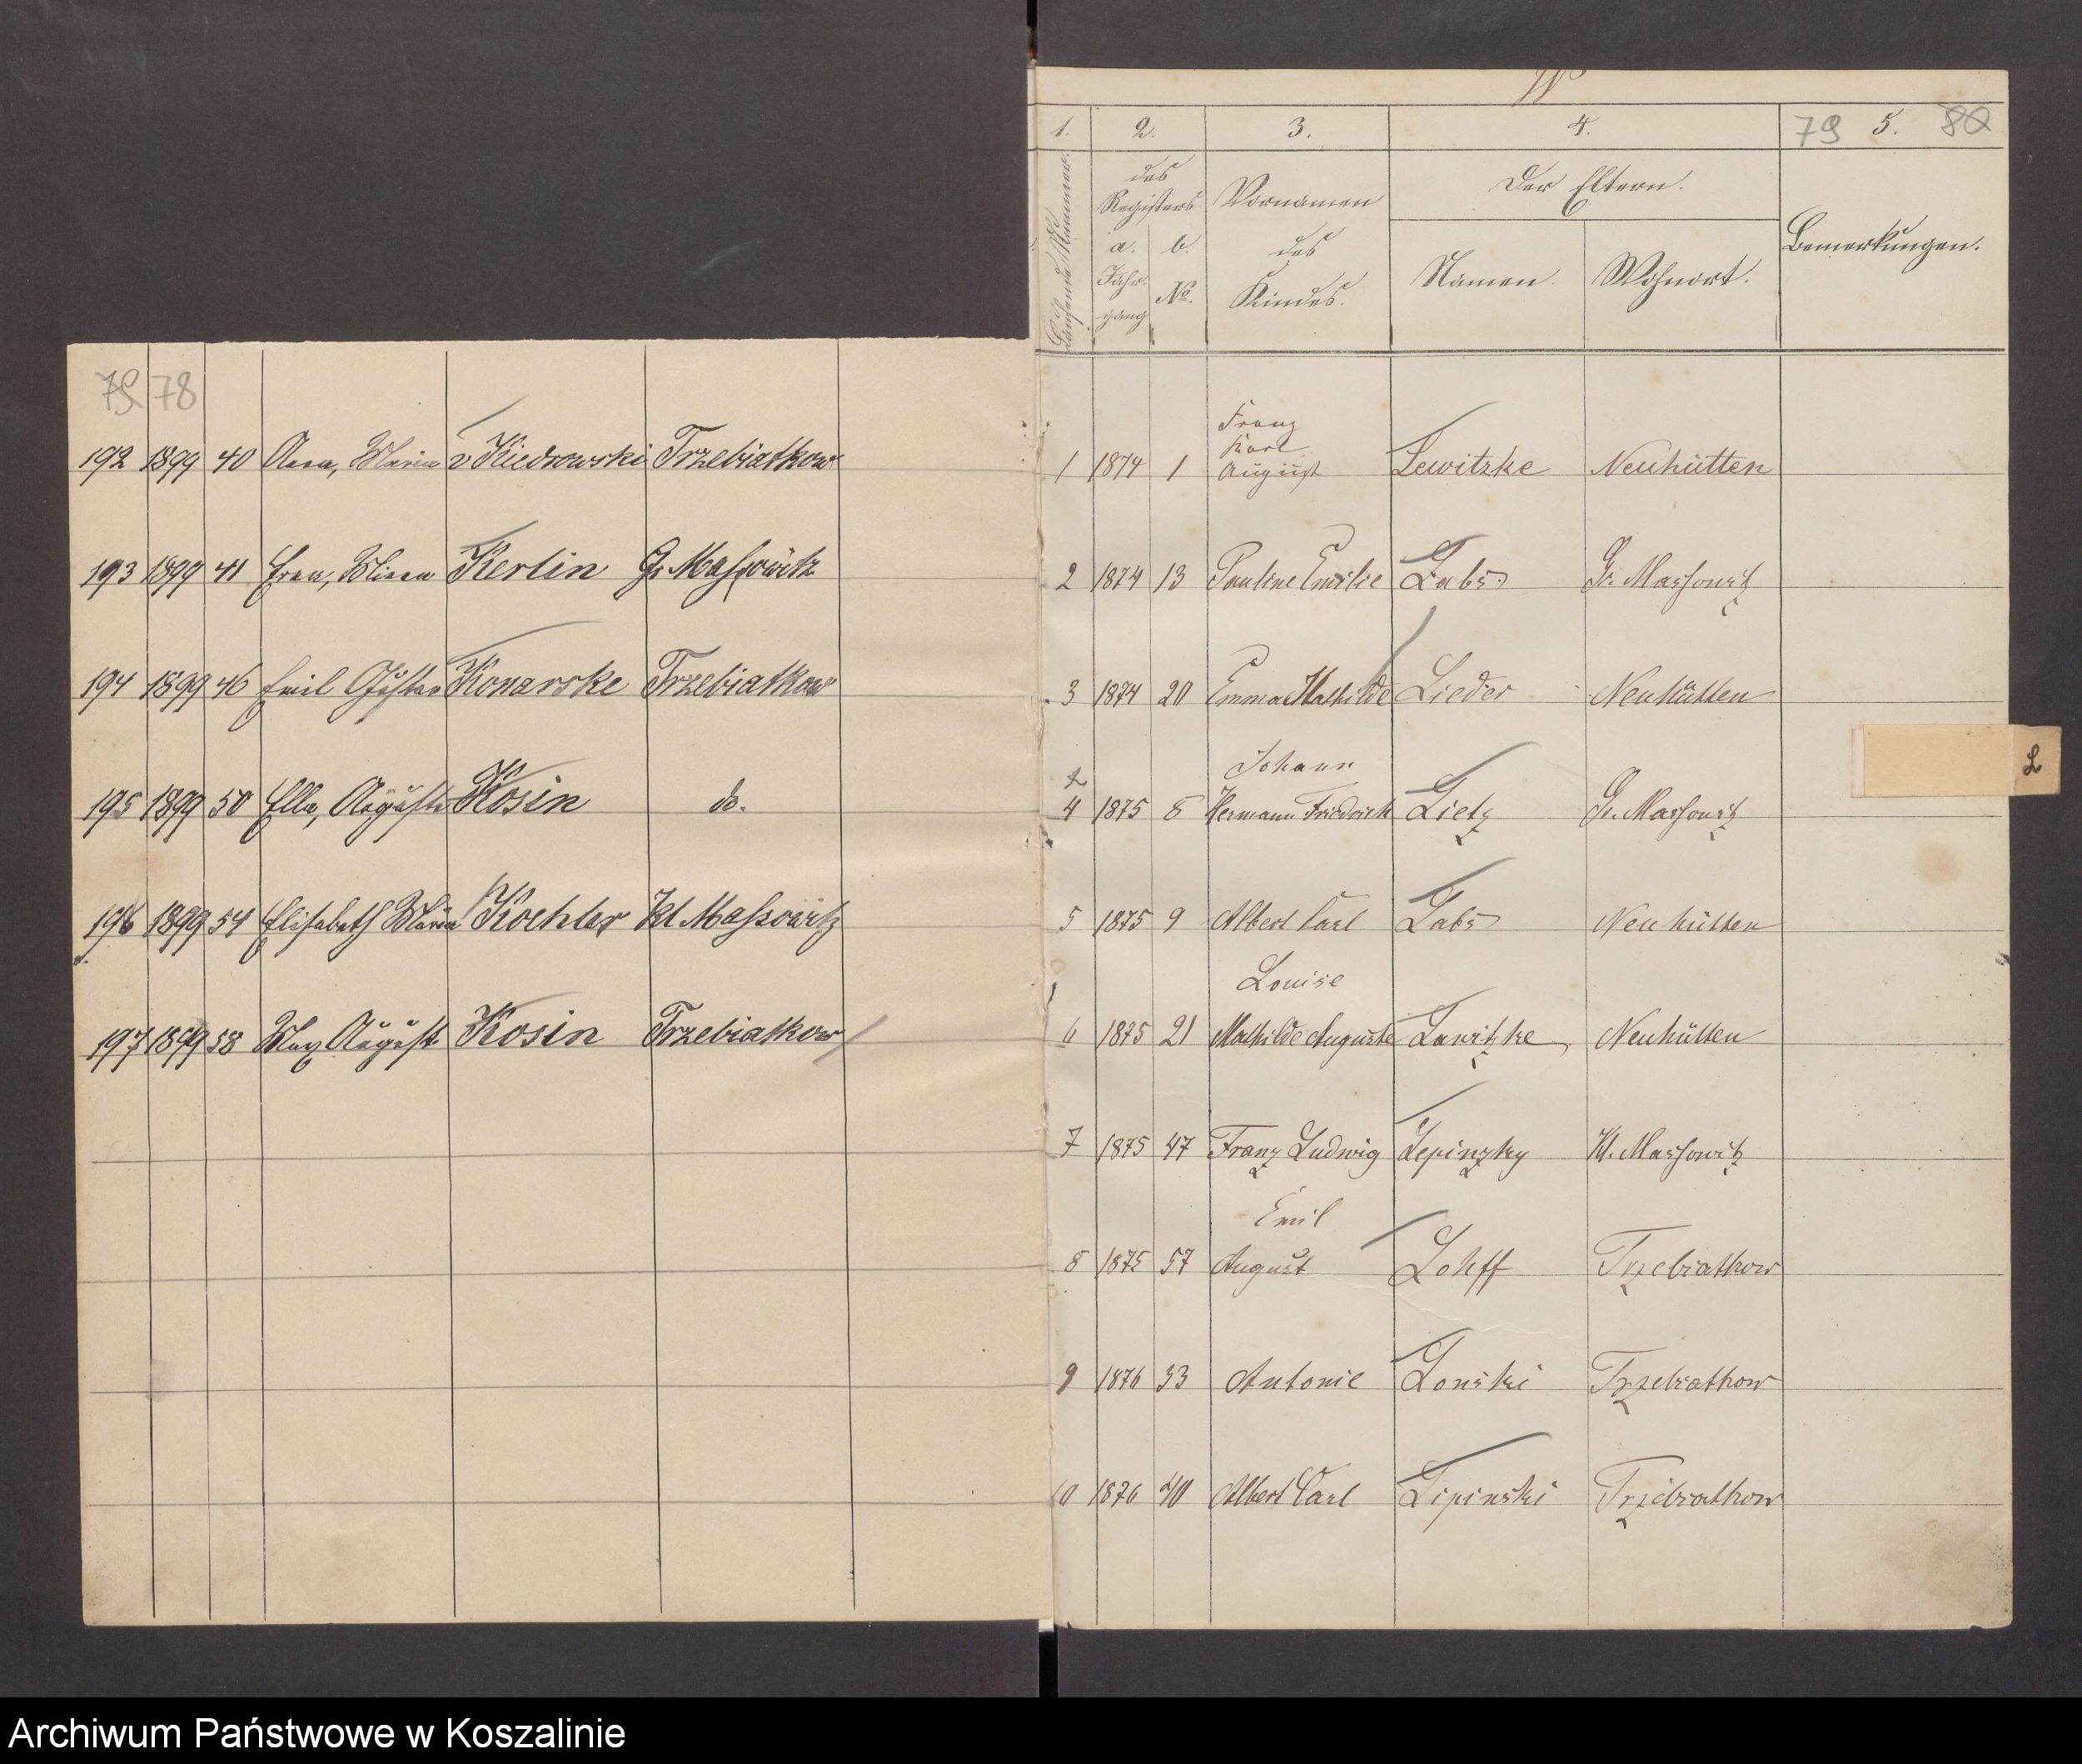 79 78
192 1899 40 Clara, Maria v Kiedrowski Trzebiatkow
193 1899 41 Erna, Minna Kerlin Gr Massowitz
194 1899 46 Emil Gustav Konarske Trzebiatkow
195 1899 50 Ella, Auguste Kosin do.
196 1899 54 Elisabeth Maria Koehler Kl Massowitz
197 1899 58 Max August Kosin Trzebiatkow
1. 2. 3. 4. 79 5. 80
Laufende Nummer.
des
Registers
a. b.
Jahr-
gang
No.
Vornamen
des
Kindes.
Der Eltern.
Namen. Wohnort.
Bemerkungen.
Franz
Karl
1 1874 1 August Lewitzke Neuhütten
2 1874 13 Pauline Emilie Labs Gr. Massowitz
3 1874 20 Emma Mathilde Lieder Neuhütten
L
Johann
4 1875 8 Hermann Friedrich Lietz Gr. Massowitz
5 1875 9 Albert Carl Labs Neuhütten
Louise
6 1875 21 Mathilde Auguste Lawitzke Neuhütten
7 1875 47 Franz Ludwig Lepinzky Kl. Massowitz
Emil
8 1875 57 August Lohff Trzebiatkow
9 1876 33 Antonie Lonski Trzebiatkow
10 1876 40 Albert Carl Lipinski Trzebiatkow
Archiwum Państwowe w Koszalinie